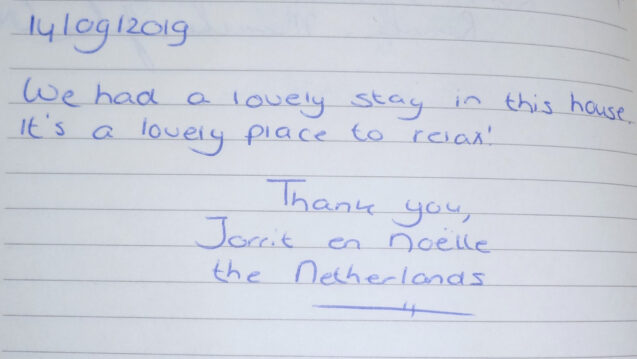 14/09/2019
We had a lovely stay in this house.
It's a lovely place to relax!
Thank you,
Jorrit en Noëlle
the Netherlands